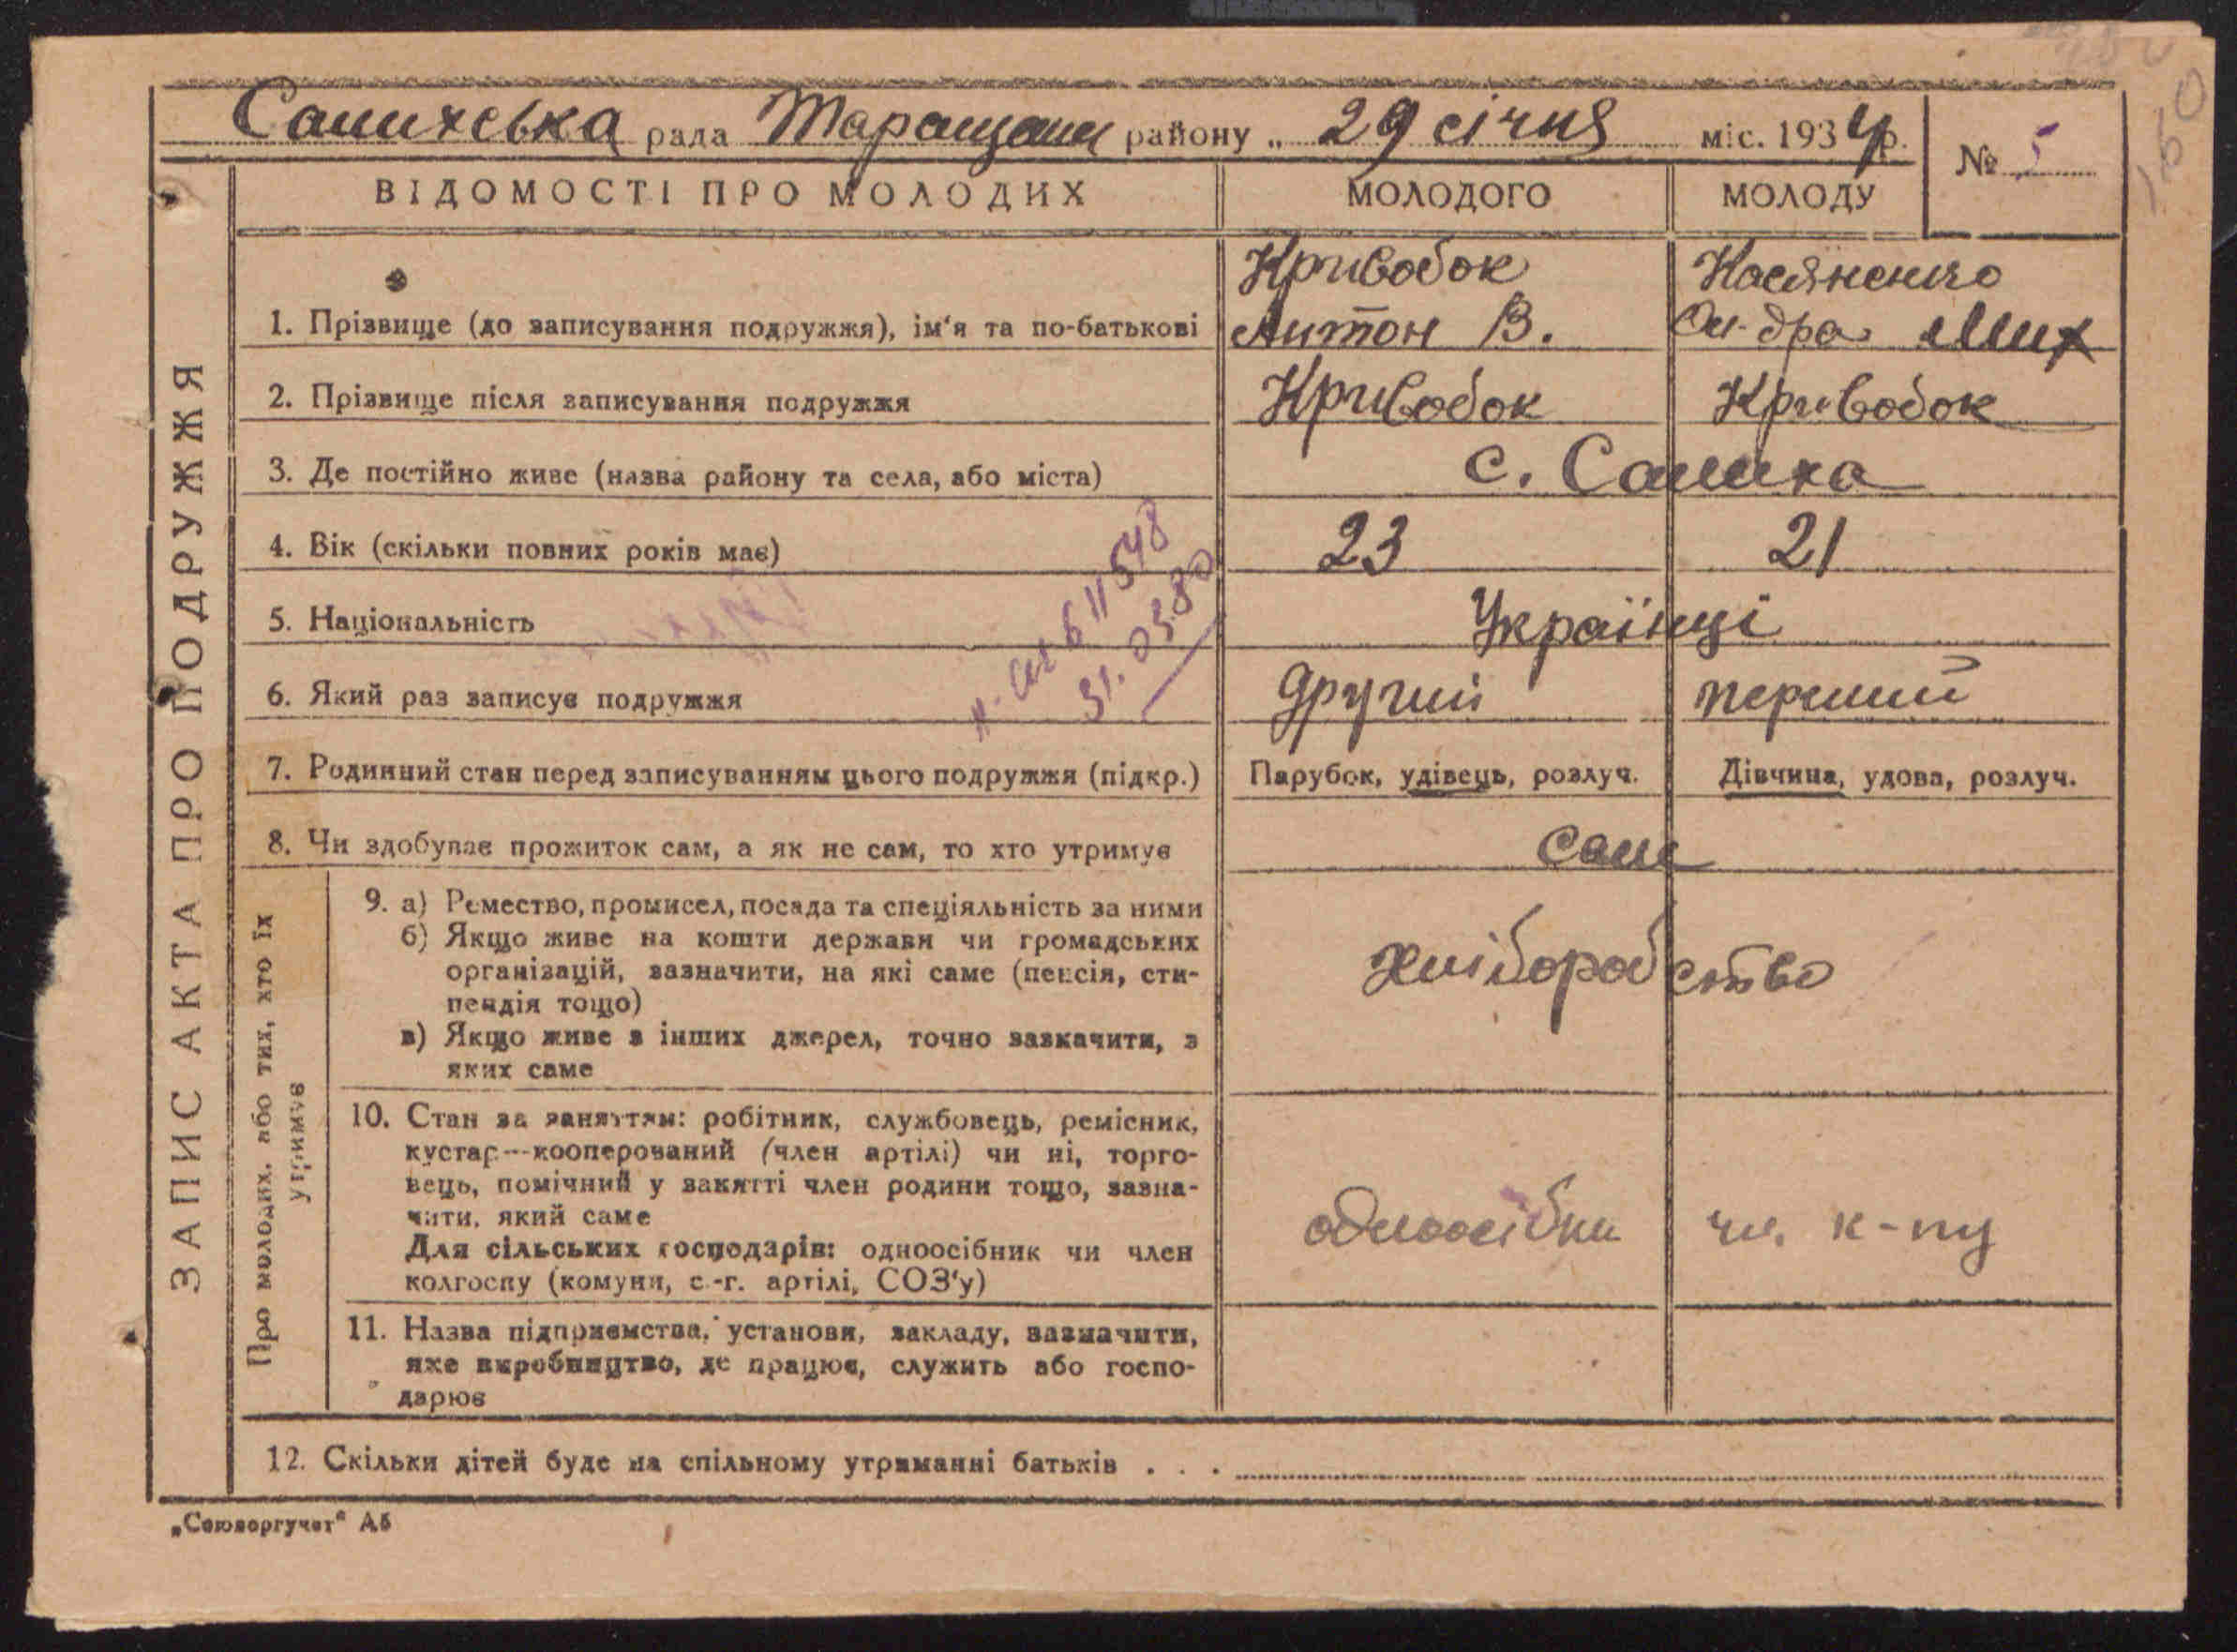 Салихська рада Таращан району „ 29 січня міс. 1934 р.
№ 5
ЗАПИС АКТА ПРО ПОДРУЖЖЯ
ВІДОМОСТІ ПРО МОЛОДИХ МОЛОДОГО МОЛОДУ
Кривобок Касяненко
1. Прізвище (до записування подружжя), ім'я та по-батькові Антон В. Ол-дра Мих
2. Прізвище після записування подружжя Кривобок Кривобок
3. Де постійно живе (назва району та села, або міста) с. Салиха
4. Вік (скільки повних років має) 23 21
5. Національність Українці
6. Який раз записує подружжя другий перший
611548
31.03.80
7. Родинний стан перед записуванням цього подружжя (підкр.) Парубок, удівець, розлуч. Дівчина, удова, розлуч.
8. Чи здобуває прожиток сам, а як не сам, то хто утримує самі
Про молодих, або тих, хто їх утримує
9. а) Ремество, промисел, посада та спеціяльність за ними
б) Якщо живе на кошти держави чи громадських
організацій, зазначити, на які саме (пенсія, сти-
пендія тощо)
в) Якщо живе з інших джерел, точно зазначити, з
яких саме
хліборобство
10. Стан за заняттям: робітник, службовець, ремісник,
кустар—кооперований (член артілі) чи ні, торго-
вець, помічний у занятті член родини тощо, зазна-
чити, який саме
Для сільських господарів: одноосібник чи член
колгоспу (комуни, с.-г. артілі, СОЗ'у)
одноосібни чл. к-пу
11. Назва підприємства, установи, закладу, зазначити,
яке виробництво, де працює, служить або госпо-
дарює
12. Скільки дітей буде на спільному утриманні батьків . . .
„Союзоргучет“ А5